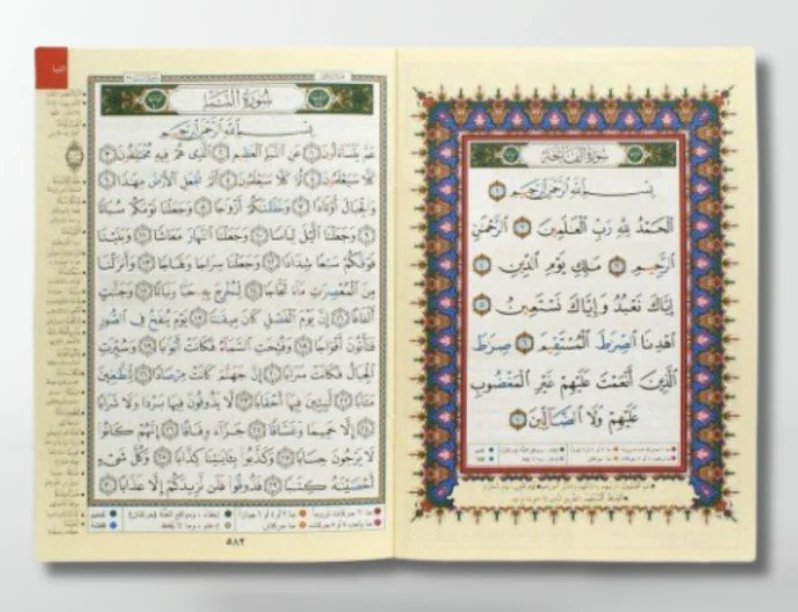 سُورَةُ الفَاتِحَةِ
بِسْمِ ٱللَّهِ ٱلرَّحْمَٰنِ ٱلرَّحِيمِ ١
ٱلْحَمْدُ لِلَّهِ رَبِّ ٱلْعَٰلَمِينَ ٢ ٱلرَّحْمَٰنِ
ٱلرَّحِيمِ ٣ مَٰلِكِ يَوْمِ ٱلدِّينِ ٤
إِيَّاكَ نَعْبُدُ وَإِيَّاكَ نَسْتَعِينُ ٥
ٱهْدِنَا ٱلصِّرَٰطَ ٱلْمُسْتَقِيمَ ٦ صِرَٰطَ
ٱلَّذِينَ أَنْعَمْتَ عَلَيْهِمْ غَيْرِ ٱلْمَغْضُوبِ
عَلَيْهِمْ وَلَا ٱلضَّآلِّينَ ٧
سُورَةُ النَّبَإِ
بِسْمِ ٱللَّهِ ٱلرَّحْمَٰنِ ٱلرَّحِيمِ
عَمَّ يَتَسَآءَلُونَ ١ عَنِ ٱلنَّبَإِ ٱلْعَظِيمِ ٢ ٱلَّذِى هُمْ فِيهِ مُخْتَلِفُونَ ٣
كَلَّا سَيَعْلَمُونَ ٤ ثُمَّ كَلَّا سَيَعْلَمُونَ ٥ أَلَمْ نَجْعَلِ ٱلْأَرْضَ مِهَٰدًا ٦
وَٱلْجِبَالَ أَوْتَادًا ٧ وَخَلَقْنَٰكُمْ أَزْوَٰجًا ٨ وَجَعَلْنَا نَوْمَكُمْ سُبَاتًا
٩ وَجَعَلْنَا ٱلَّيْلَ لِبَاسًا ١٠ وَجَعَلْنَا ٱلنَّهَارَ مَعَاشًا ١١ وَبَنَيْنَا
فَوْقَكُمْ سَبْعًا شِدَادًا ١٢ وَجَعَلْنَا سِرَاجًا وَهَّاجًا ١٣ وَأَنزَلْنَا
مِنَ ٱلْمُعْصِرَٰتِ مَآءً ثَجَّاجًا ١٤ لِّنُخْرِجَ بِهِۦ حَبًّا وَنَبَاتًا ١٥ وَجَنَّٰتٍ
أَلْفَافًا ١٦ إِنَّ يَوْمَ ٱلْفَصْلِ كَانَ مِيقَٰتًا ١٧ يَوْمَ يُنفَخُ فِى ٱلصُّورِ
فَتَأْتُونَ أَفْوَاجًا ١٨ وَفُتِحَتِ ٱلسَّمَآءُ فَكَانَتْ أَبْوَٰبًا ١٩ وَسُيِّرَتِ
ٱلْجِبَالُ فَكَانَتْ سَرَابًا ٢٠ إِنَّ جَهَنَّمَ كَانَتْ مِرْصَادًا ٢١ لِّلطَّٰغِينَ
مَـَٔابًا ٢٢ لَّٰبِثِينَ فِيهَآ أَحْقَابًا ٢٣ لَّا يَذُوقُونَ فِيهَا بَرْدًا وَلَا شَرَابًا
٢٤ إِلَّا حَمِيمًا وَغَسَّاقًا ٢٥ جَزَآءً وِفَاقًا ٢٦ إِنَّهُمْ كَانُوا۟
لَا يَرْجُونَ حِسَابًا ٢٧ وَكَذَّبُوا۟ بِـَٔايَٰتِنَا كِذَّابًا ٢٨ وَكُلَّ شَىْءٍ
أَحْصَيْنَٰهُ كِتَٰبًا ٢٩ فَذُوقُوا۟ فَلَن نَّزِيدَكُمْ إِلَّا عَذَابًا ٣٠
٥٨٢